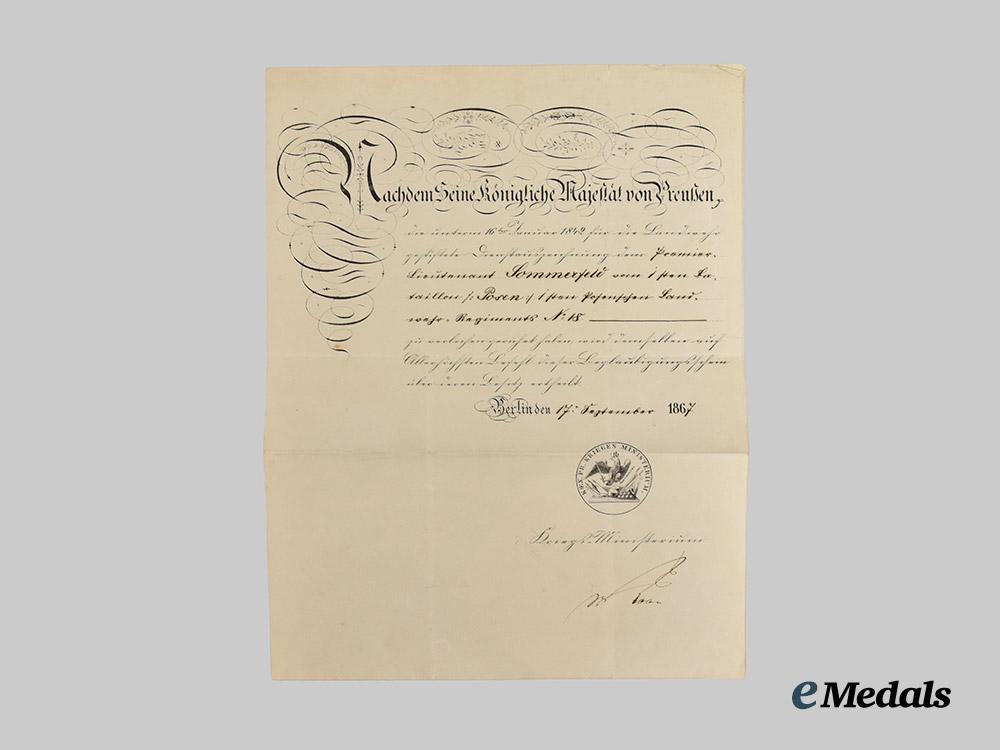 Nachdem Seine Königliche Majestät von Preußen,
die unterm 16ten Januar 1842 für die Landwehr
gestiftete Dienstauszeichnung dem Premier-
Lieutenant Sommerfeld vom 1sten Ba-
taillon /: Posen :/ 1sten Posenschen Land-
wehr-Regiments No: 18
zu verleihen geruhet haben, wird demselben auf
Allerhöchsten Befehl dieser Beglaubigungsschein
über deren Besitz ertheilt.
Berlin den 17: September 1867
KOEN. PR. KRIEGES MINISTERIUM
Kriegs-Ministerium
eMedals